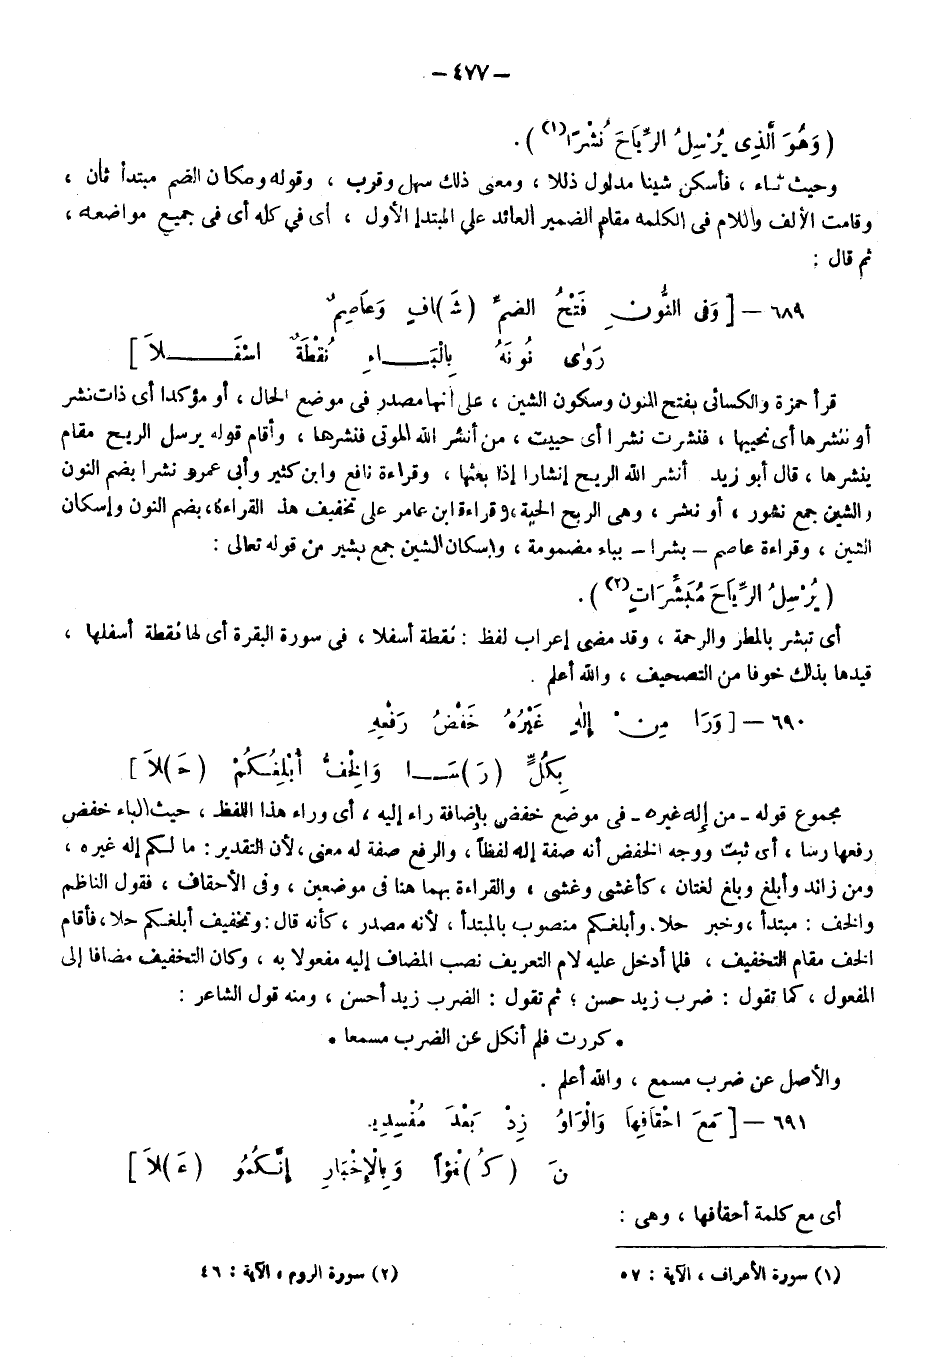 — ٤٧٧ —
( وَهُوَ الَّذِى يُرْسِلُ الرِّيَاحَ نُشْرًا(١) ) .
وحيث شاء ، فأسكن شينا مدلول ذللا ، ومعنى ذلك سهل وقرب ، وقوله ومكان الضم مبتدأ ثان ،
وقامت الألف واللام فى الكلمه مقام الضمير العائد على المبتدإ الأول ، أى في كله أى فى جميع مواضعه ،
ثم قال :
٦٨٩ — [ وَفى النُّونِ فَتْحُ الضمِّ ( شَـ)افٍ وَعَاصِمٌ
رَوٰى نُونَهُ بِالْبَاءِ نُقْطَةٌ اسْفَلاَ ]
قرأ حمزة والكسائى بفتح النون وسكون الشين ، على أنها مصدر فى موضع الحال ، أو مؤكدا أى ذات نشر
أو ننشرها أى نحييها ، فنشرت نشرا أى حييت ، من أنشر الله الموتى فنشرها ، وأقام قوله يرسل الريح مقام
ينشرها ، قال أبو زيد أنشر الله الريح إنشارا إذا بعثها ، وقراءة نافع وابن كثير وأبى عمرو نشرا بضم النون
والشين جمع نشور ، أو نشر ، وهى الريح الحية ، وقراءة ابن عامر على تخفيف هذ القراءة ، بضم النون وإسكان
الشين ، وقراءة عاصم — بشرا — بباء مضمومة ، وإسكان الشين جمع بشير من قوله تعالى :
( يُرْسِلُ الرِّيَاحَ مُبَشِّرَاتٍ(٢) ) .
أى تبشر بالمطر والرحمة ، وقد مضى إعراب لفظ : نُقطة أسفلا ، فى سورة البقرة أى لها نُقطة أسفلها ،
قيدها بذلك خوفا من التصحيف ، والله أعلم .
٦٩٠ — [ وَرَا مِنْ إِلٰهٍ غَيْرُهُ خَفْضُ رَفْعِهِ
بِكُلٍّ ( رَ)سَا وَالْخفُّ أُبْلِغُكُمْ ( حَـ)لاَ ]
مجموع قوله ـ من إله غيره ـ فى موضع خفض بإضافة راء إليه ، أى وراء هذا اللفظ ، حيث الباء خفض
رفعها رسا ، أى ثبت ووجه الخفض أنه صفة إله لفظاً ، والرفع صفة له معنى ، لأن التقدير : ما لكم إله غيره ،
ومن زائد وأبلغ وبلغ لغتان ، كأغشى وغشى ، والقراءة بهما هنا فى موضعين ، وفى الأحقاف ، فقول الناظم
والخف : مبتدأ ، وخبر حلا. وأبلغكم منصوب بالمبتدأ ، لأنه مصدر ، كأنه قال : وتخفيف أبلغكم حلا ، فأقام
الخف مقام التخفيف ، فلما أدخل عليه لام التعريف نصب المضاف إليه مفعولا به ، وكان التخفيف مضافا إلى
المفعول ، كما تقول : ضرب زيد حسن ؛ ثم تقول : الضرب زيد أحسن ، ومنه قول الشاعر :
• كررت فلم أنكل عن الضرب مسمعا •
والأصل عن ضرب مسمع ، والله أعلم .
٦٩١ — [ مَعَ احْقَافِهَا وَالْوَاوُ زِدْ بَعْدَ مُفْسِدِيـ
ـنَ ( كُـ)فْؤًا وَبِالْإِخْبَارِ إِنَّكُمُو ( عَـ)لاَ ]
أى مع كلمة أحقافها ، وهى :
(١) سورة الأعراف ، الآية : ٥٧
(٢) سورة الروم ، الآية : ٤٦